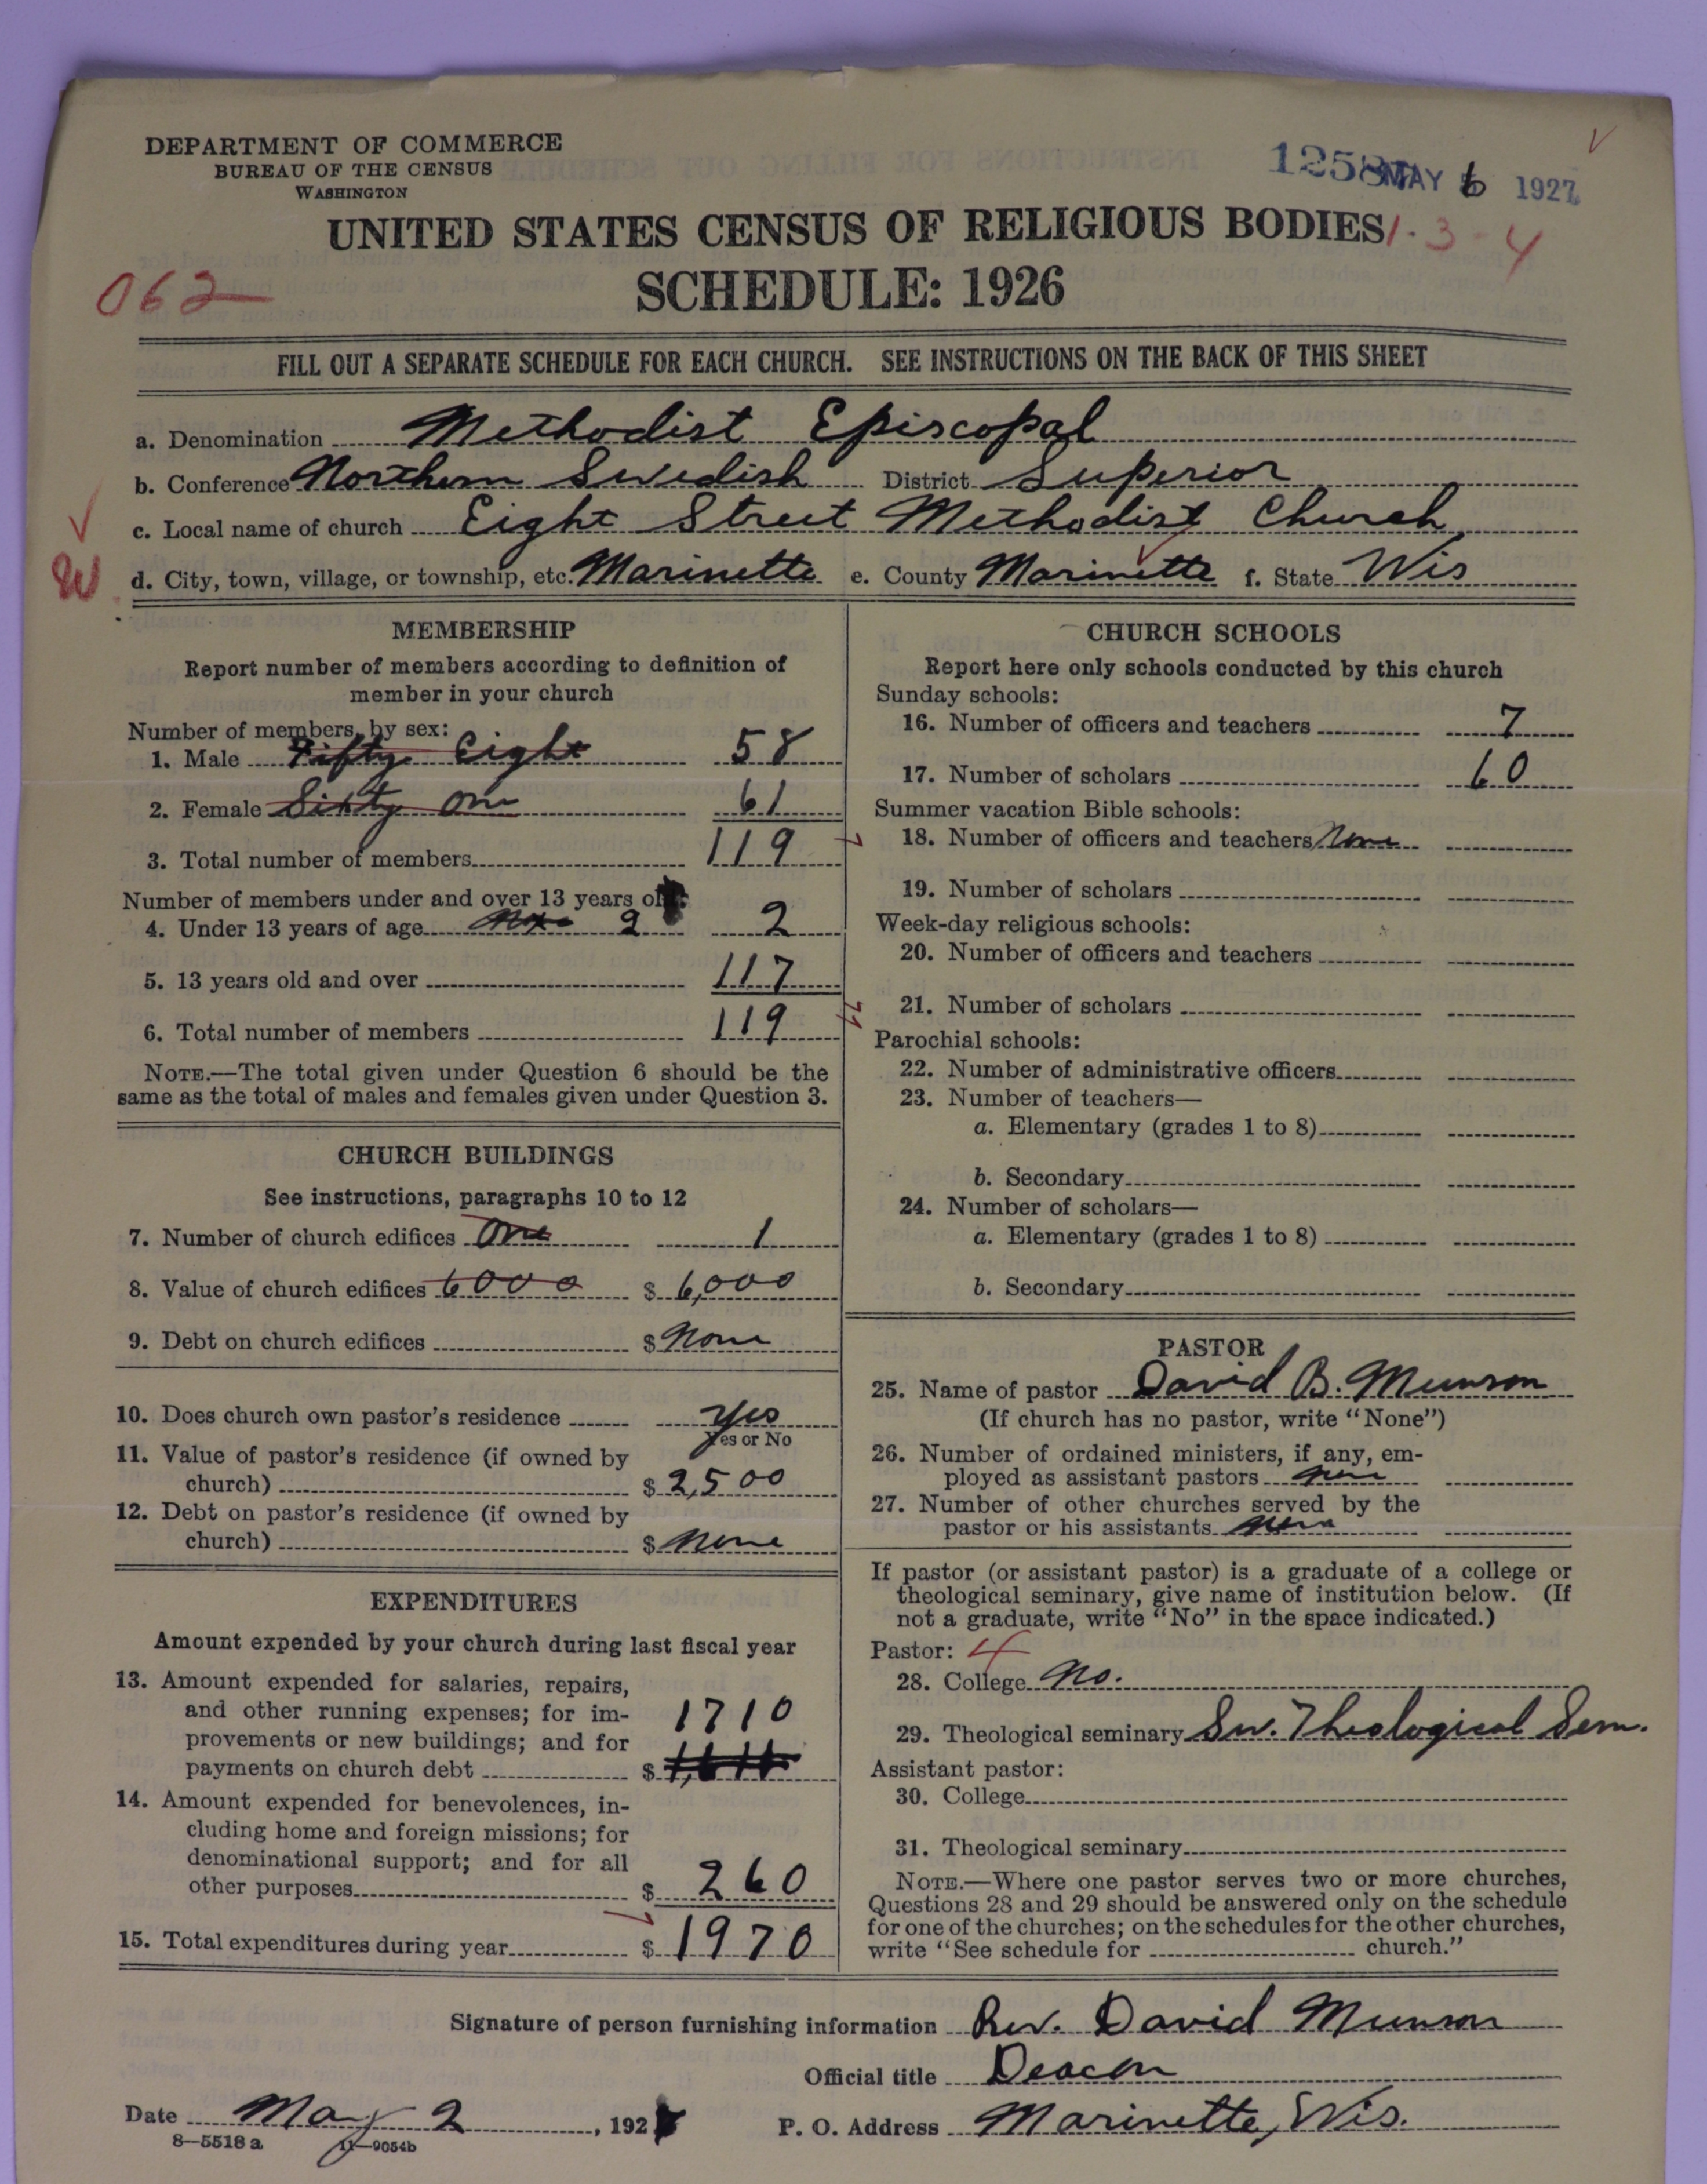 DEPARTMENT OF COMMERCE
BUREAU OF THE CENSUS
WASHINGTON
MAY 6 1927
UNITED STATES CENSUS OF RELIGIOUS BODIES
1-3-4
062
SCHEDULE: 1926
FILL OUT A SEPARATE SCHEDULE FOR EACH CHURCH. SEE INSTRUCTIONS ON THE BACK OF THIS SHEET
a. Denomination Methodist Episcopal
b. Conference Northern Swedish District Superior
c. Local name of church Eight Street Methodist Church
d. City, town, village, or township, etc. Marinette e. County Marinette f. State Wis
MEMBERSHIP
Report number of members according to definition of
member in your church
Number of members, by sex:
1. Male Fifty Eight 58
2. Female Sixty One 61
3. Total number of members 119
Number of members under and over 13 years of
4. Under 13 years of age 2 2
5. 13 years old and over 117
6. Total number of members 119
NOTE.—The total given under Question 6 should be the
same as the total of males and females given under Question 3.
CHURCH BUILDINGS
See instructions, paragraphs 10 to 12
7. Number of church edifices One 1
8. Value of church edifices 6000 $ 6,000
9. Debt on church edifices $ None
10. Does church own pastor's residence Yes
Yes or No
11. Value of pastor's residence (if owned by
church) $ 2,500
12. Debt on pastor's residence (if owned by
church) $ None
EXPENDITURES
Amount expended by your church during last fiscal year
13. Amount expended for salaries, repairs,
and other running expenses; for im-
provements or new buildings; and for 1710
payments on church debt $
14. Amount expended for benevolences, in-
cluding home and foreign missions; for
denominational support; and for all
other purposes $ 260
15. Total expenditures during year $ 1970
CHURCH SCHOOLS
Report here only schools conducted by this church
Sunday schools:
16. Number of officers and teachers 7
17. Number of scholars 60
Summer vacation Bible schools:
18. Number of officers and teachers None
19. Number of scholars
Week-day religious schools:
20. Number of officers and teachers
21. Number of scholars
Parochial schools:
22. Number of administrative officers
23. Number of teachers—
a. Elementary (grades 1 to 8)
b. Secondary
24. Number of scholars—
a. Elementary (grades 1 to 8)
b. Secondary
PASTOR
25. Name of pastor David B. Munson
(If church has no pastor, write "None")
26. Number of ordained ministers, if any, em-
ployed as assistant pastors None
27. Number of other churches served by the
pastor or his assistants None
If pastor (or assistant pastor) is a graduate of a college or
theological seminary, give name of institution below. (If
not a graduate, write "No" in the space indicated.)
Pastor: 4
28. College No.
29. Theological seminary Sw. Theological Sem.
Assistant pastor:
30. College
31. Theological seminary
NOTE.—Where one pastor serves two or more churches,
Questions 28 and 29 should be answered only on the schedule
for one of the churches; on the schedules for the other churches,
write "See schedule for church."
Signature of person furnishing information Rev. David Munson
Official title Deacon
Date May 2, 192 P. O. Address Marinette, Wis.
8—5518 a 11—9054b